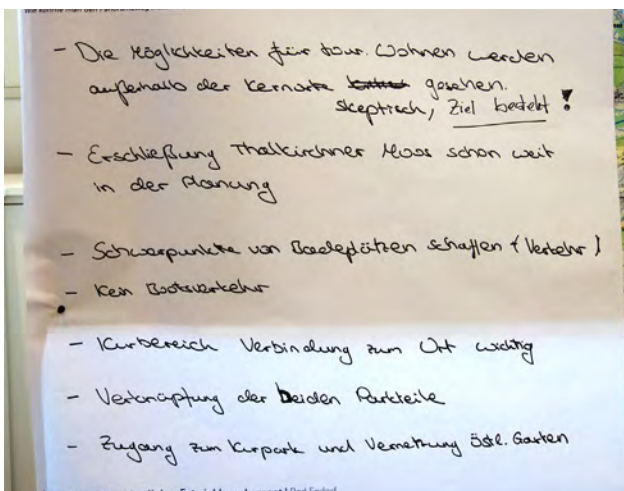 - Die Möglichkeiten für tour. Wohnen werden
außerhalb der Kernorte gesehen.
skeptisch, Ziel besteht!
- Erschließung Thalkirchner Moos schon weit
in der Planung
- Schwerpunkte von Badeplätzen schaffen (Verkehr)
- Kein Bootsverkehr
- Kurbereich Verbindung zum Ort wichtig
- Verknüpfung der beiden Parkteile
- Zugang zum Kurpark und Vernetzung östl. Garten